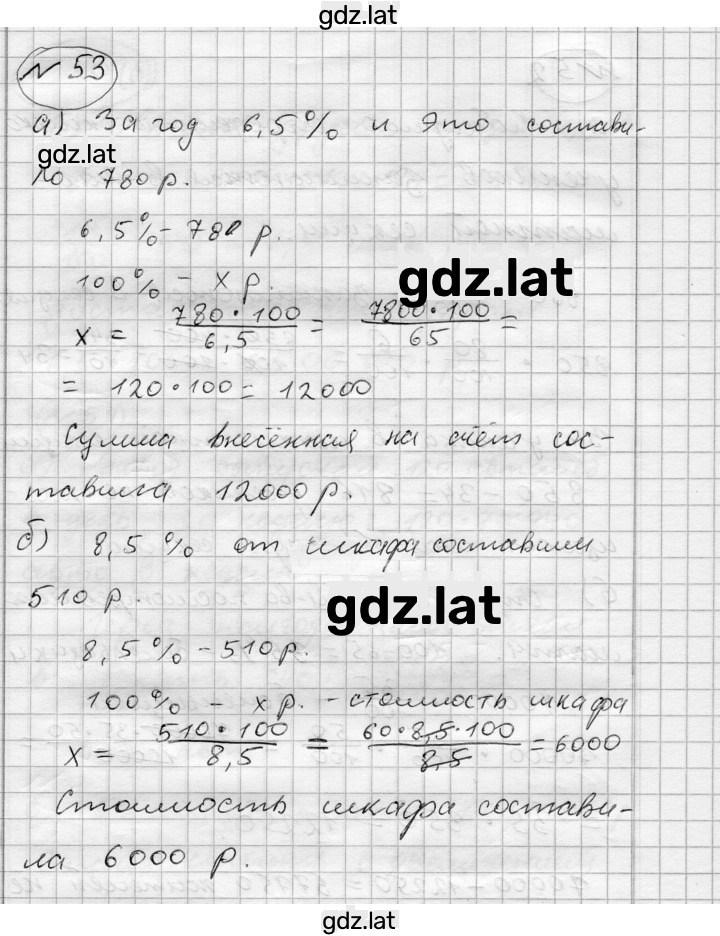 gdz.lat
№ 53
а) За год 6,5% и это состави-
gdz.lat
ло 780 р.
6,5% - 780 р.
100% - x р.
gdz.lat
x = 780·100/6,5 = 7800·100/65 =
= 120·100 = 12000
Сумма внесённая на счёт сос-
тавила 12000 р.
б) 8,5% от шкафа составили
510 р.
gdz.lat
8,5% - 510 р.
100% - x р. - стоимость шкафа
x = 510·100/8,5 = 60·8,5·100/8,5 = 6000
Стоимость шкафа состави-
ла 6000 р.
gdz.lat